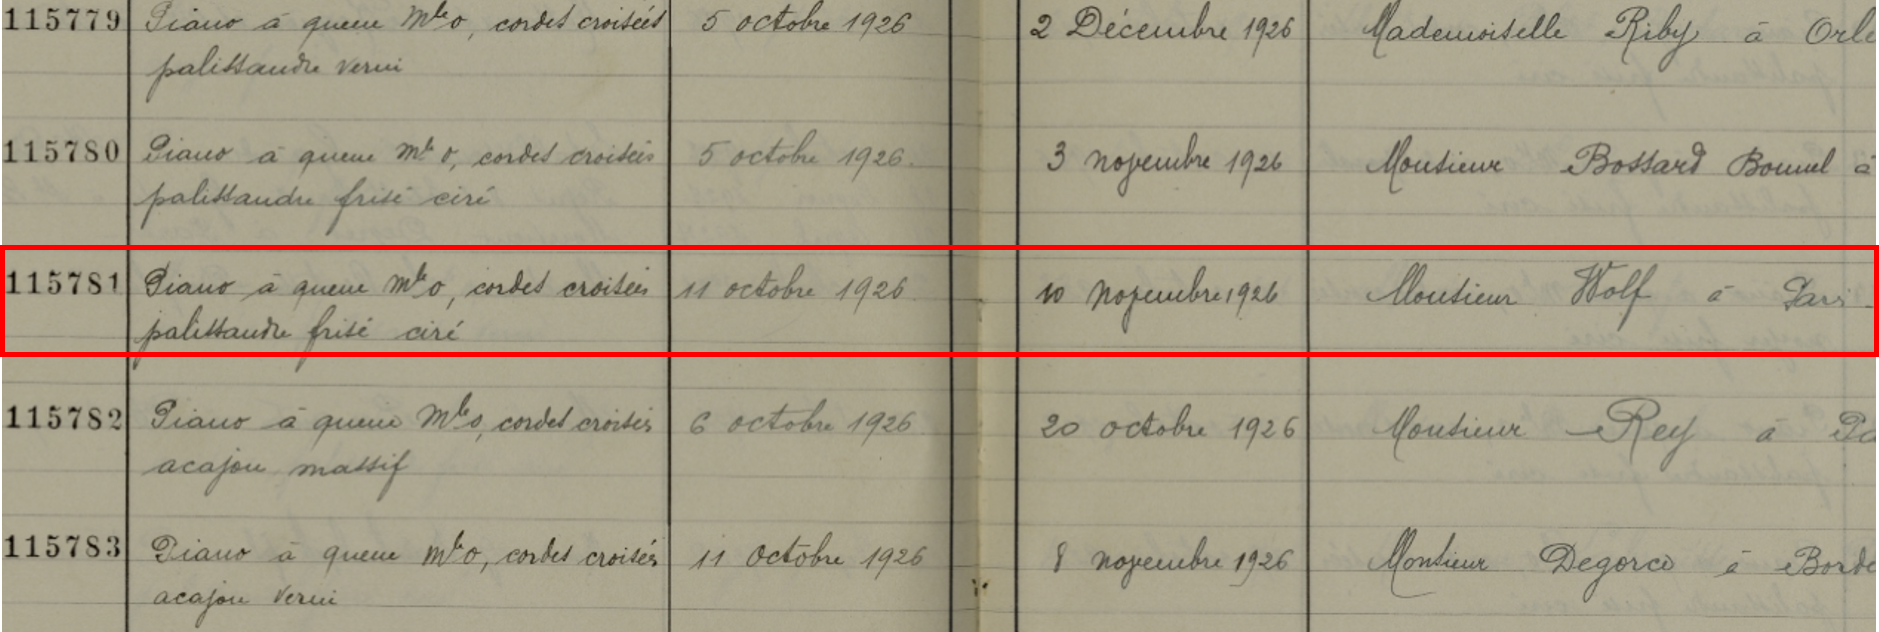 115779 Piano à queue Mle o, cordes croisées 5 octobre 1926 2 Décembre 1926 Mademoiselle Riby à Orle
palissandre verni
115780 Piano à queue Mle o, cordes croisées 5 octobre 1926. 3 novembre 1926 Monsieur Bossard Bonnel à
palissandre frisé ciré
115781 Piano à queue Mle o, cordes croisées 11 octobre 1926 10 novembre 1926 Monsieur Wolf à Paris
palissandre frisé ciré
115782 Piano à queue Mle o, cordes croisées 6 octobre 1926 20 octobre 1926 Monsieur Rey à Pa
acajou massif
115783 Piano à queue Mle o, cordes croisées 11 Octobre 1926 8 novembre 1926 Monsieur Degorce à Borde
acajou verni